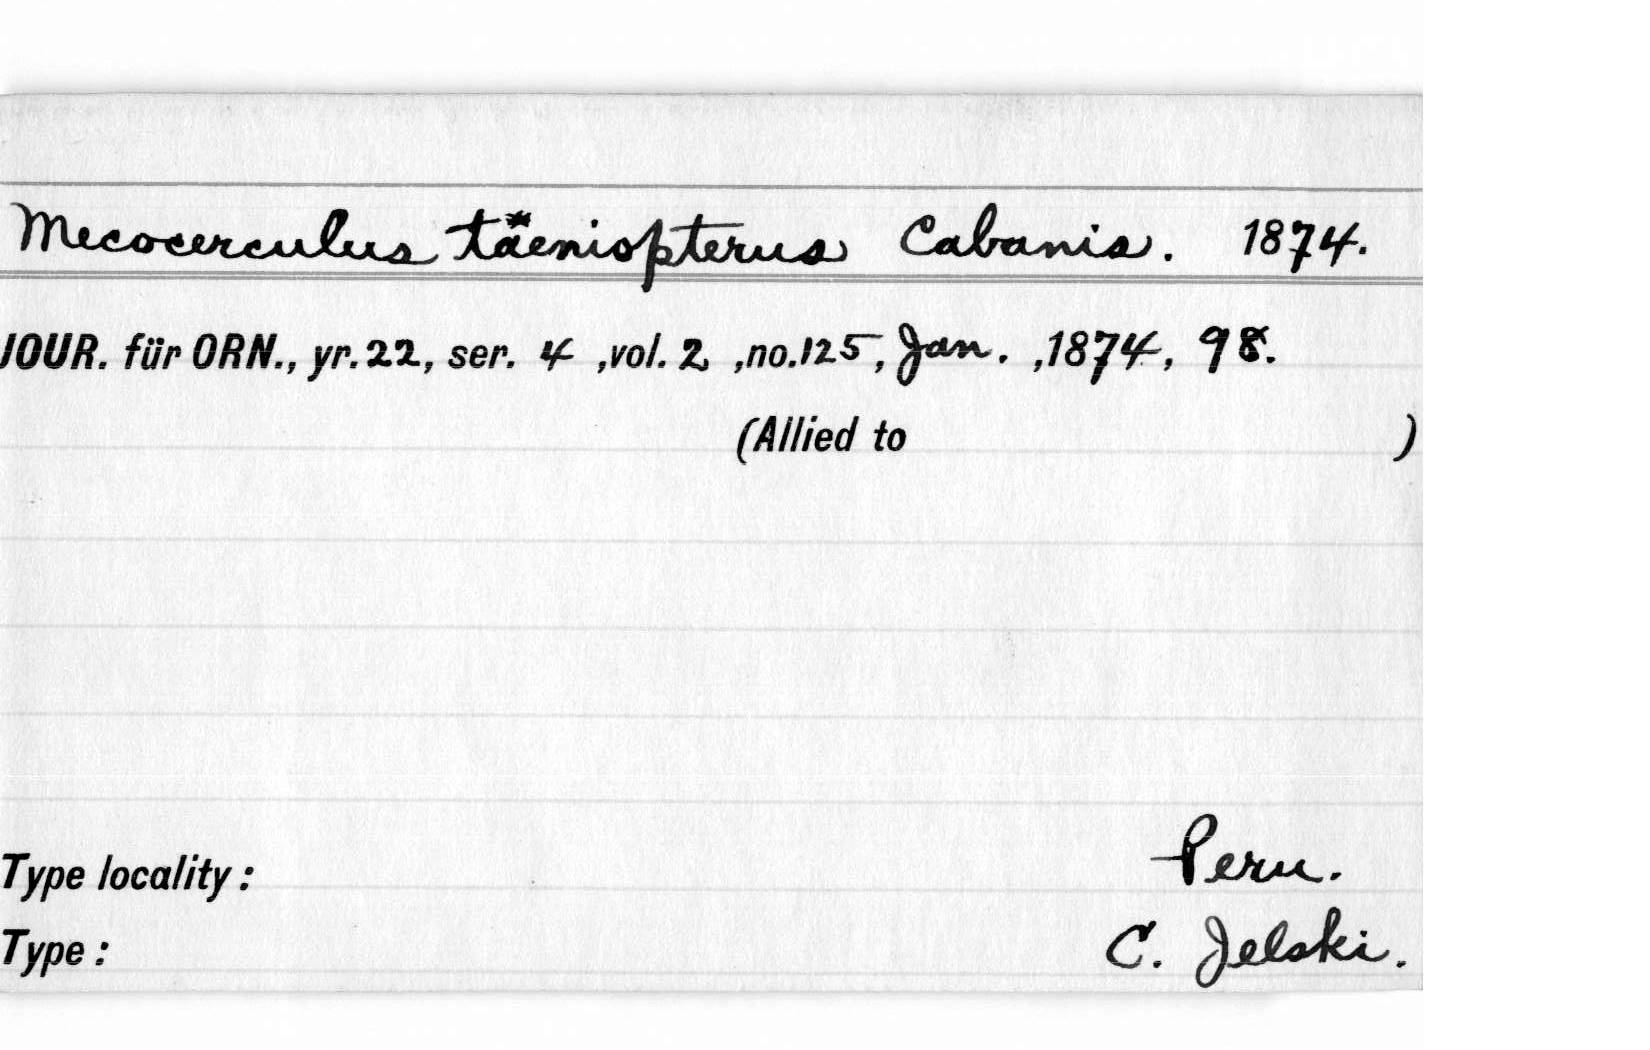 Mecocerculus täeniopterus Cabanis. 1874.
JOUR. für ORN., yr. 22, ser. 4 ,vol. 2 ,no. 125, Jan. ,1874, 98.
(Allied to )
Type locality: Peru.
Type: C. Jelski.